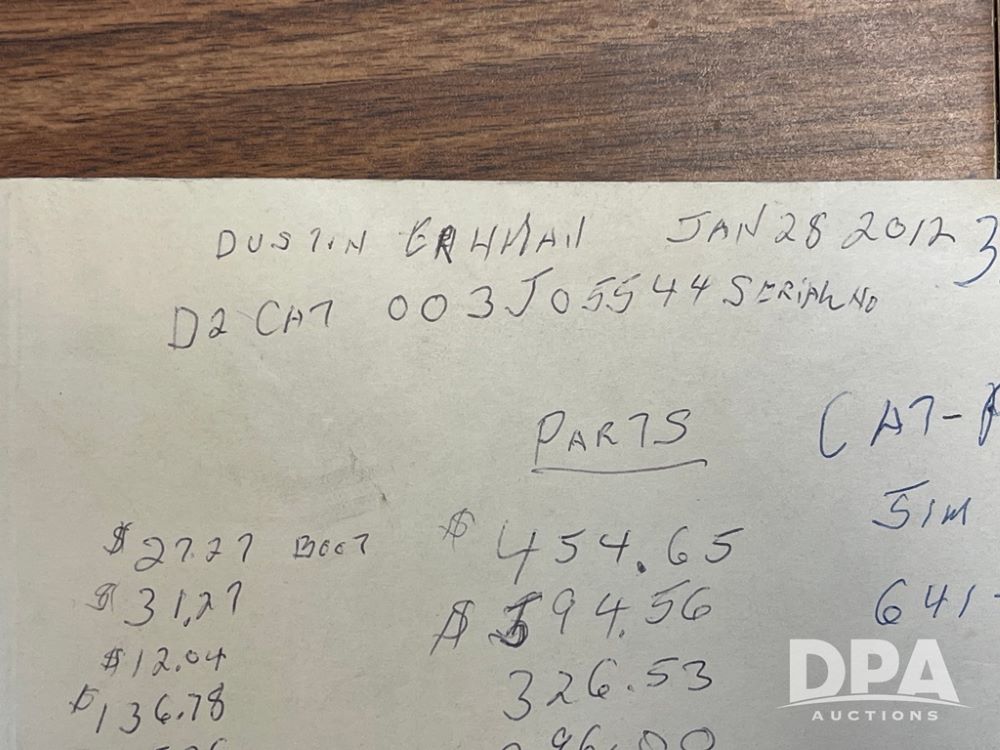 DUSTIN JAN 28 2012 3
D2 CAT 003J05544 SERIAL NO
PARTS CAT-
$27.27 BOOT $ 454.65 JIM
$31.27 $ 594.56 641-
$12.04 326.53
$136.78
DPA
AUCTIONS